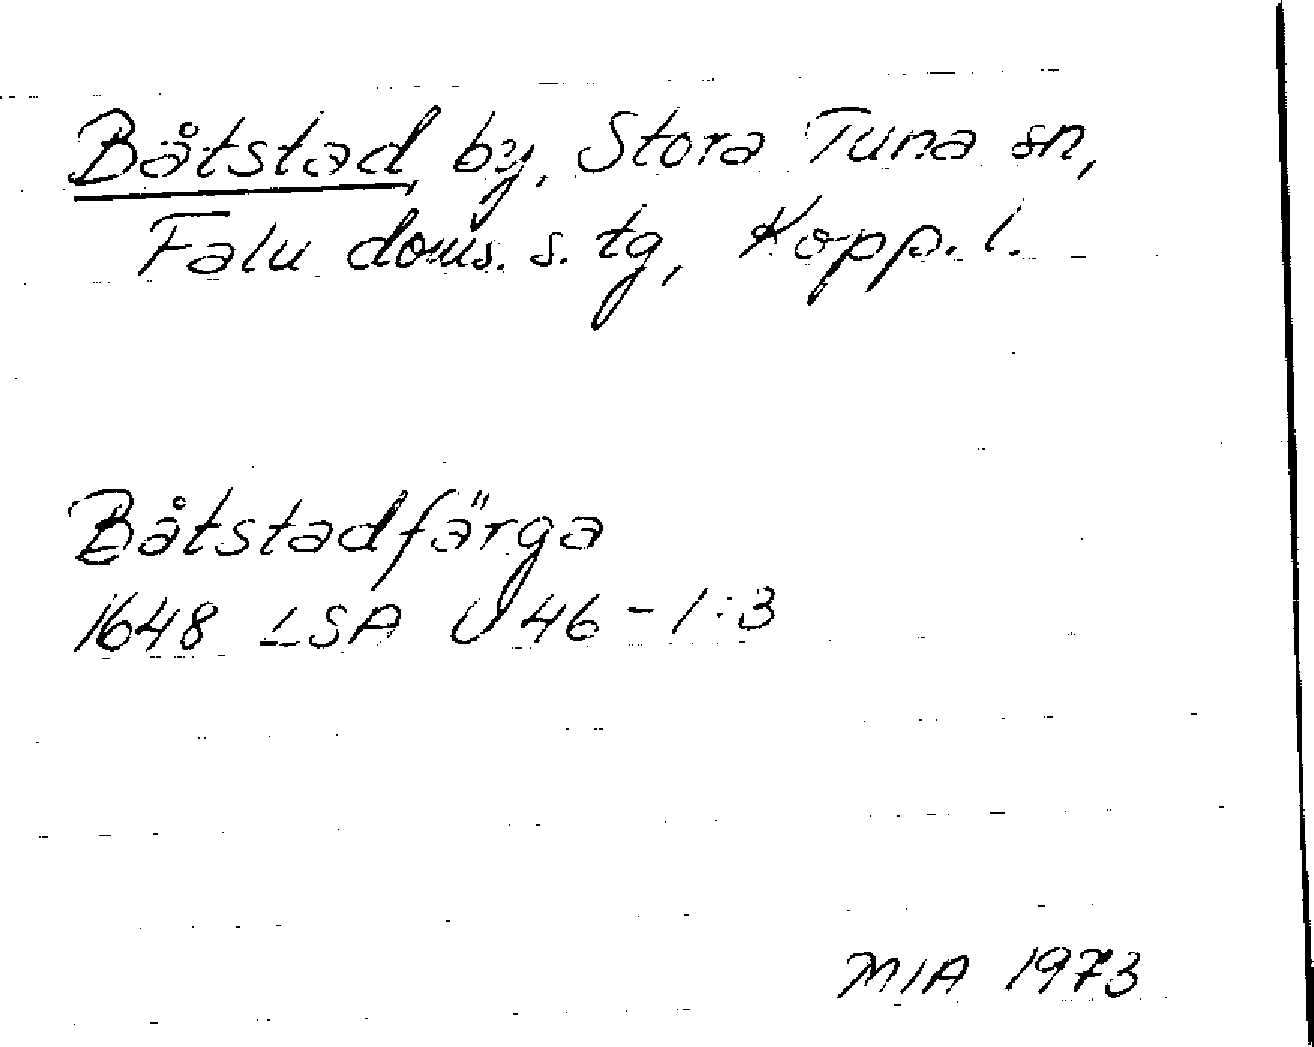 Båtstad, by, Stora Tuna sn,
Falu doms. s. tg, Kopp. l.
Båtstadfärga
1648 LSA U 46-1:3
MIA 1973